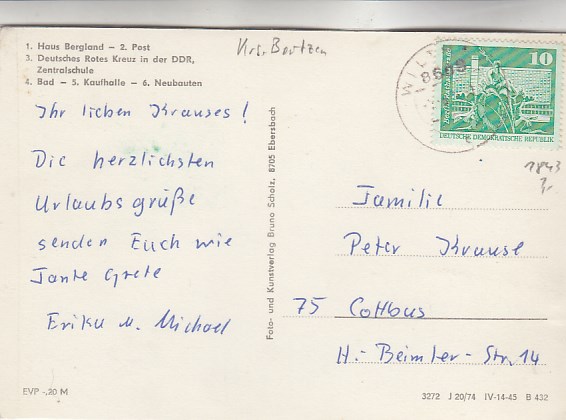 1. Haus Bergland – 2. Post
3. Deutsches Rotes Kreuz in der DDR,
Zentralschule
4. Bad – 5. Kaufhalle – 6. Neubauten
Krs. Bautzen
Ihr lieben Krauses!
Die herzlichsten
Urlaubsgrüße
senden Euch wie
Tante Grete
Erika u. Michael
Foto- und Kunstverlag Bruno Scholz, 8705 Ebersbach
WIL
10
DEUTSCHE DEMOKRATISCHE REPUBLIK
1843
Familie
Peter Krause
75 Cottbus
H.-Beimler-Str. 14
EVP -,20 M
3272 J 20/74 IV-14-45 B 432